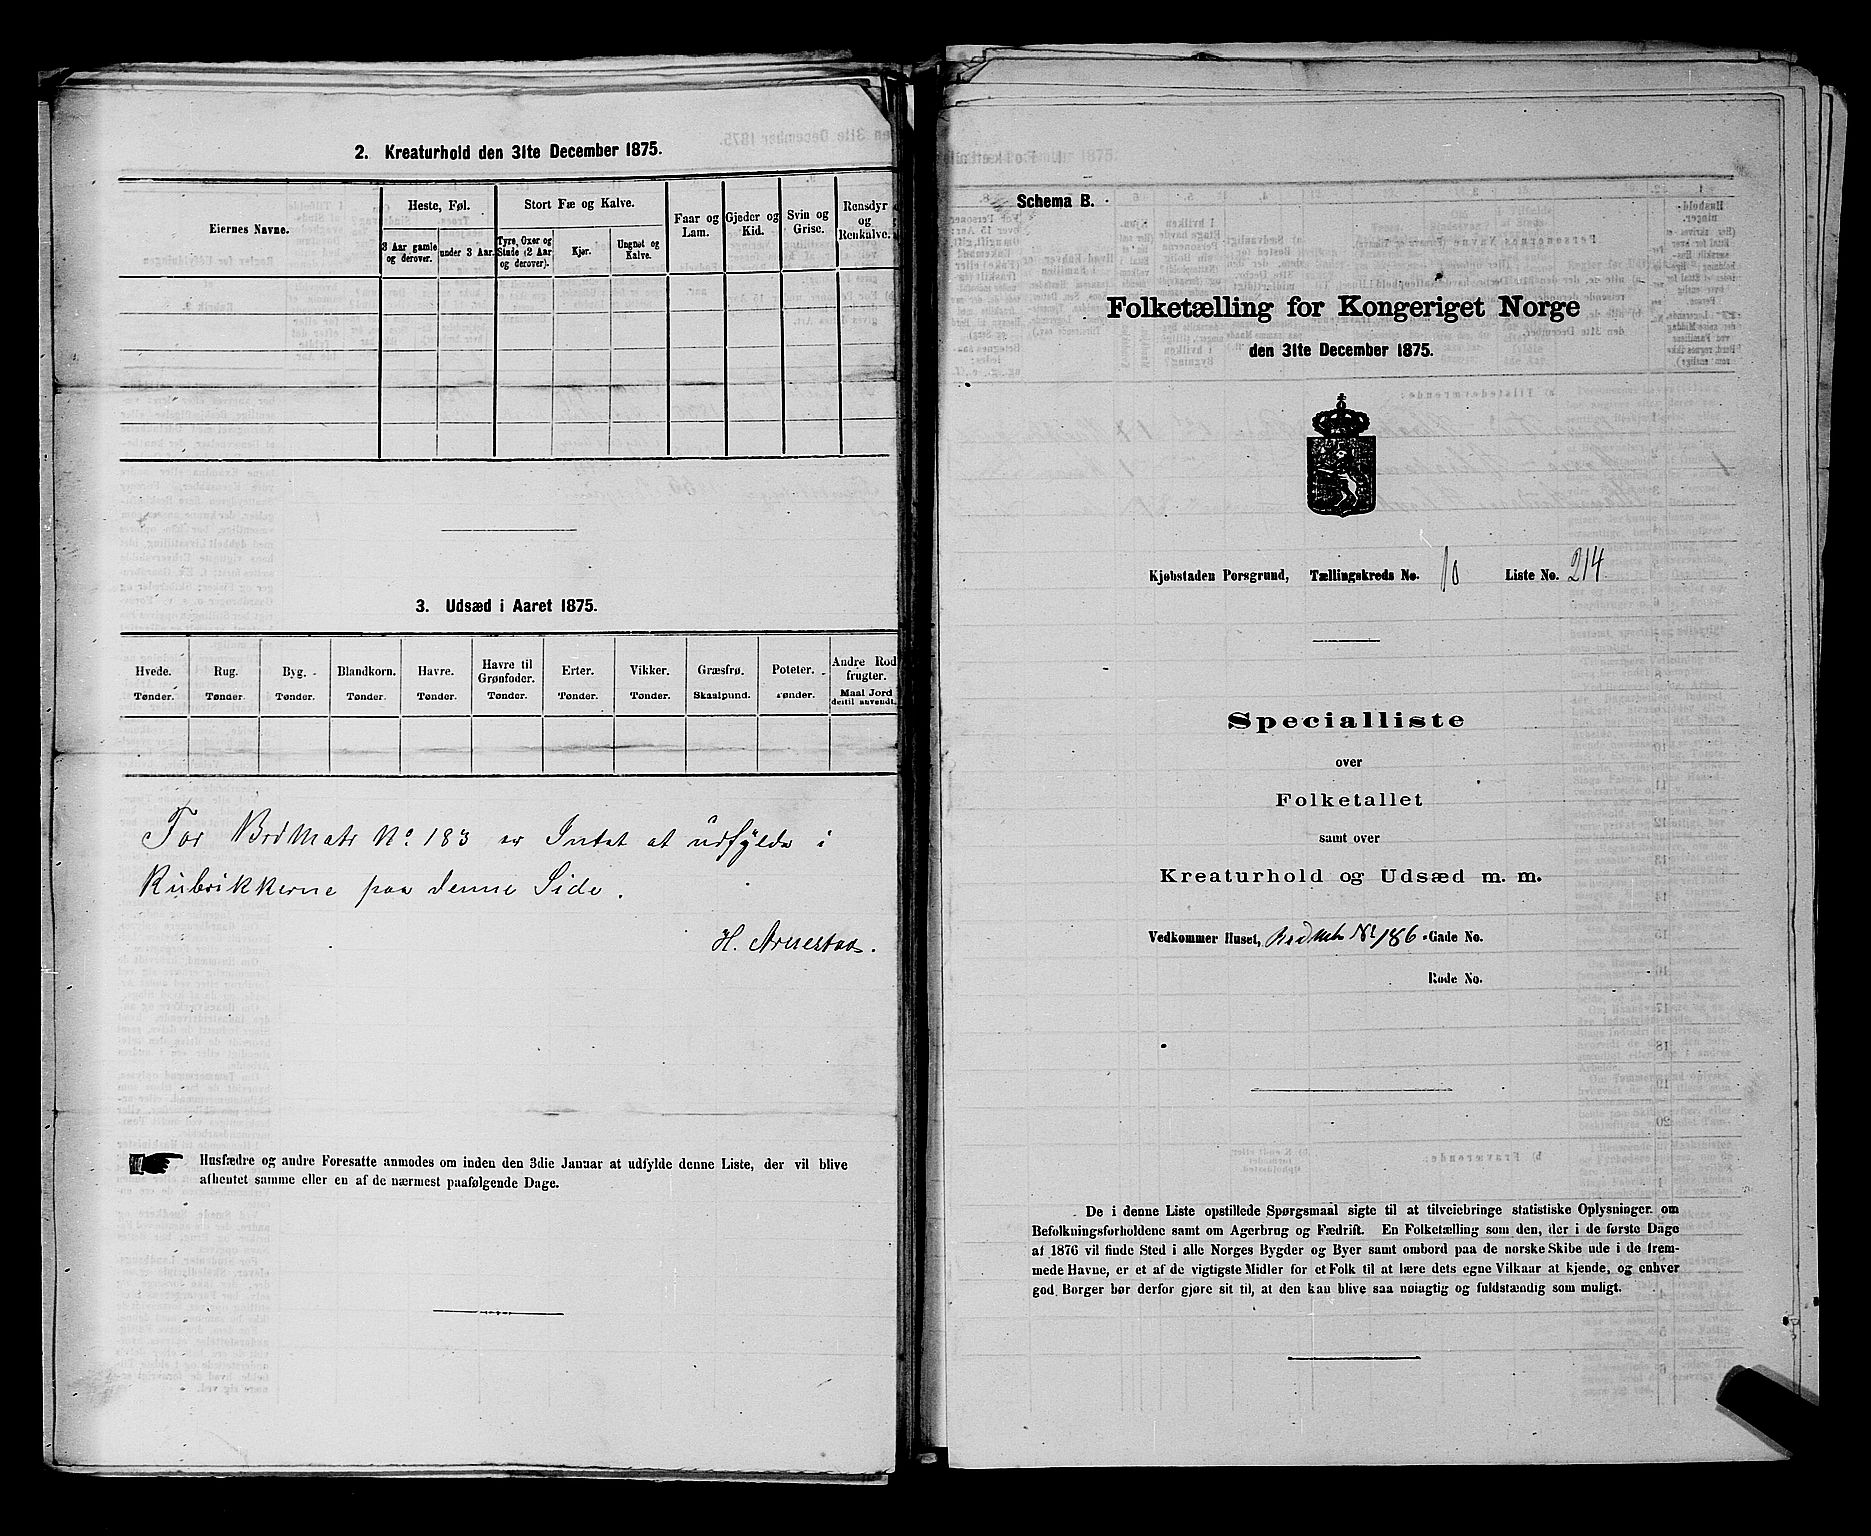 2. Kreaturhold den 31te December 1875.
Eiernes Navne.
Heste, Føl.
Stort Fæ og Kalve.
Faar og Lam.
Gjeder og Kid.
Svin og Grise.
Rensdyr og Renkalve.
3 Aar gamle og derover.
under 3 Aar.
Tyre, Oxer og Stude (2 Aar og derover).
Kjør.
Ungnøt og Kalve.
3. Udsæd i Aaret 1875.
Hvede. Rug. Byg. Blandkorn. Havre. Havre til Grønfoder. Erter. Vikker. Græsfrø. Poteter. Andre Rodfrugter.
Tønder. Tønder. Tønder. Tønder. Tønder. Tønder. Tønder. Tønder. Skaalpund. Tønder. Maal Jord dertil anvendt.
For BrdMatr No. 183 er Intet at udfylde i
Rubrikkerne paa denne Side.
H. Arnestad.
Husfædre og andre Foresatte anmodes om inden den 3die Januar at udfylde denne Liste, der vil blive
afhentet samme eller en af de nærmest paafølgende Dage.
Schema B.
Folketælling for Kongeriget Norge
den 31te December 1875.
Kjøbstaden Porsgrund, Tællingskreds No. 10 Liste No. 214
Specialliste
over
Folketallet
samt over
Kreaturhold og Udsæd m. m.
Vedkommer Huset, BrdMatr No 186 Gade No.
Rode No.
De i denne Liste opstillede Spørgsmaal sigte til at tilveiebringe statistiske Oplysninger om
Befolkningsforholdene samt om Agerbrug og Fædrift. En Folketælling som den, der i de første Dage
af 1876 vil finde Sted i alle Norges Bygder og Byer samt ombord paa de norske Skibe ude i de frem-
mede Havne, er et af de vigtigste Midler for et Folk til at lære dets egne Vilkaar at kjende, og enhver
god Borger bør derfor gjøre sit til, at den kan blive saa nøiagtig og fuldstændig som muligt.